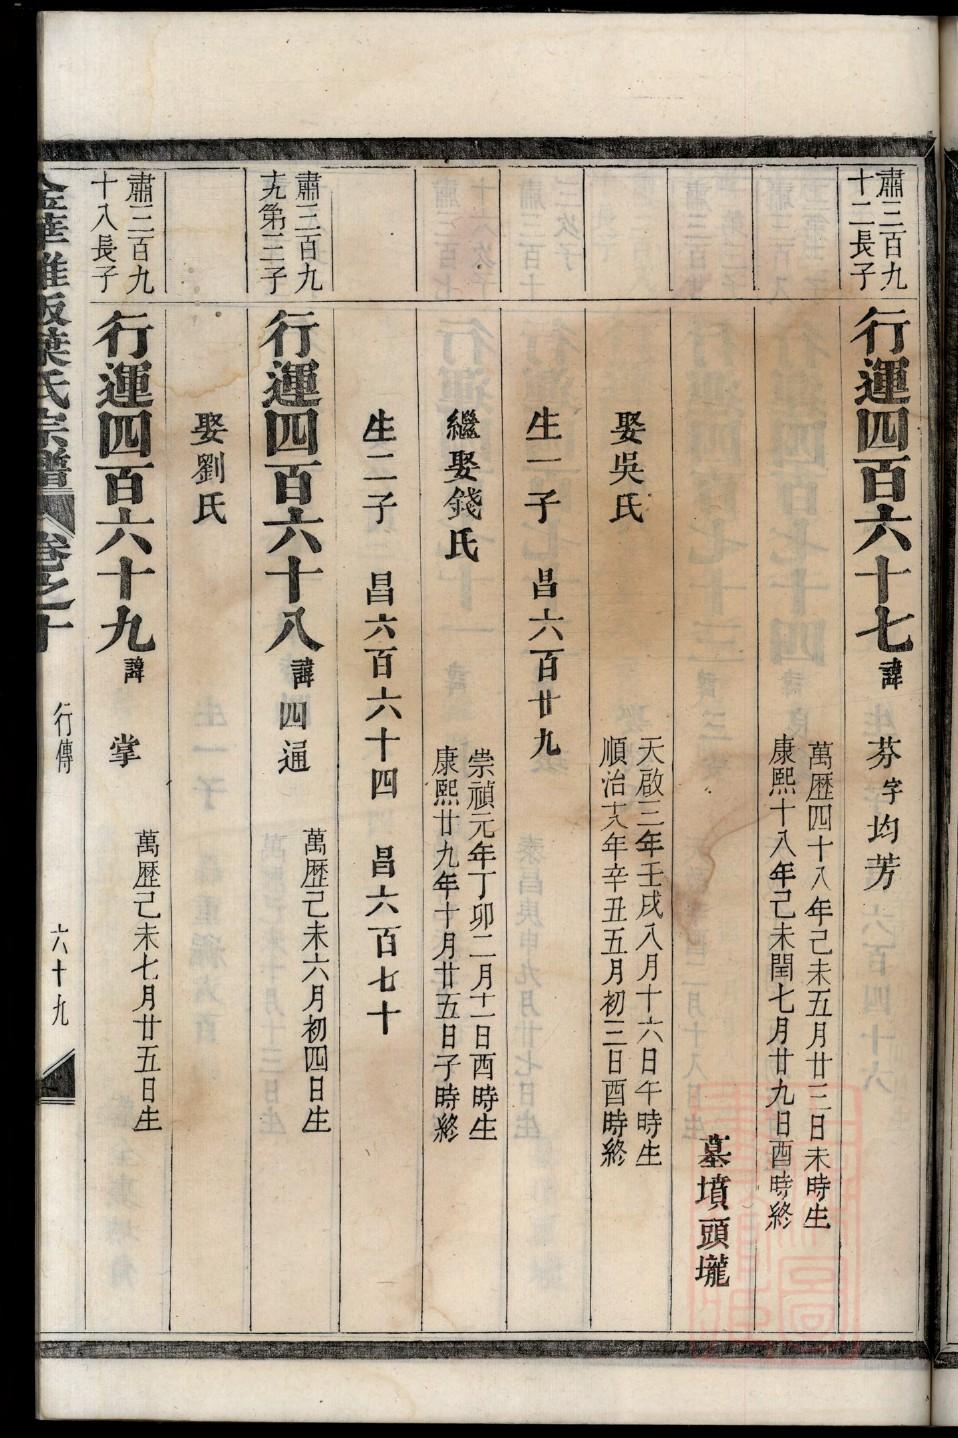 肅三百九
十二長子
行運四百六十七 諱 芬 字 均芳
萬歷四十八年己未五月廿三日未時生
康熙十八年己未閏七月廿九日酉時終
墓墳頭壠
娶吳氏
天啟三年壬戌八月十六日午時生
順治十八年辛丑五月初三日酉時終
生一子 昌六百廿九
繼娶錢氏
崇禎元年丁卯二月十一日酉時生
康熙廿九年十月廿五日子時終
生二子 昌六百六十四 昌六百七十
肅三百九
十九第三子
行運四百六十八 諱 四通
萬歷己未六月初四日生
娶劉氏
肅三百九
十八長子
行運四百六十九 諱 掌
萬歷己未七月廿五日生
金華雅畈葉氏宗譜 卷之十 行傳 六十九